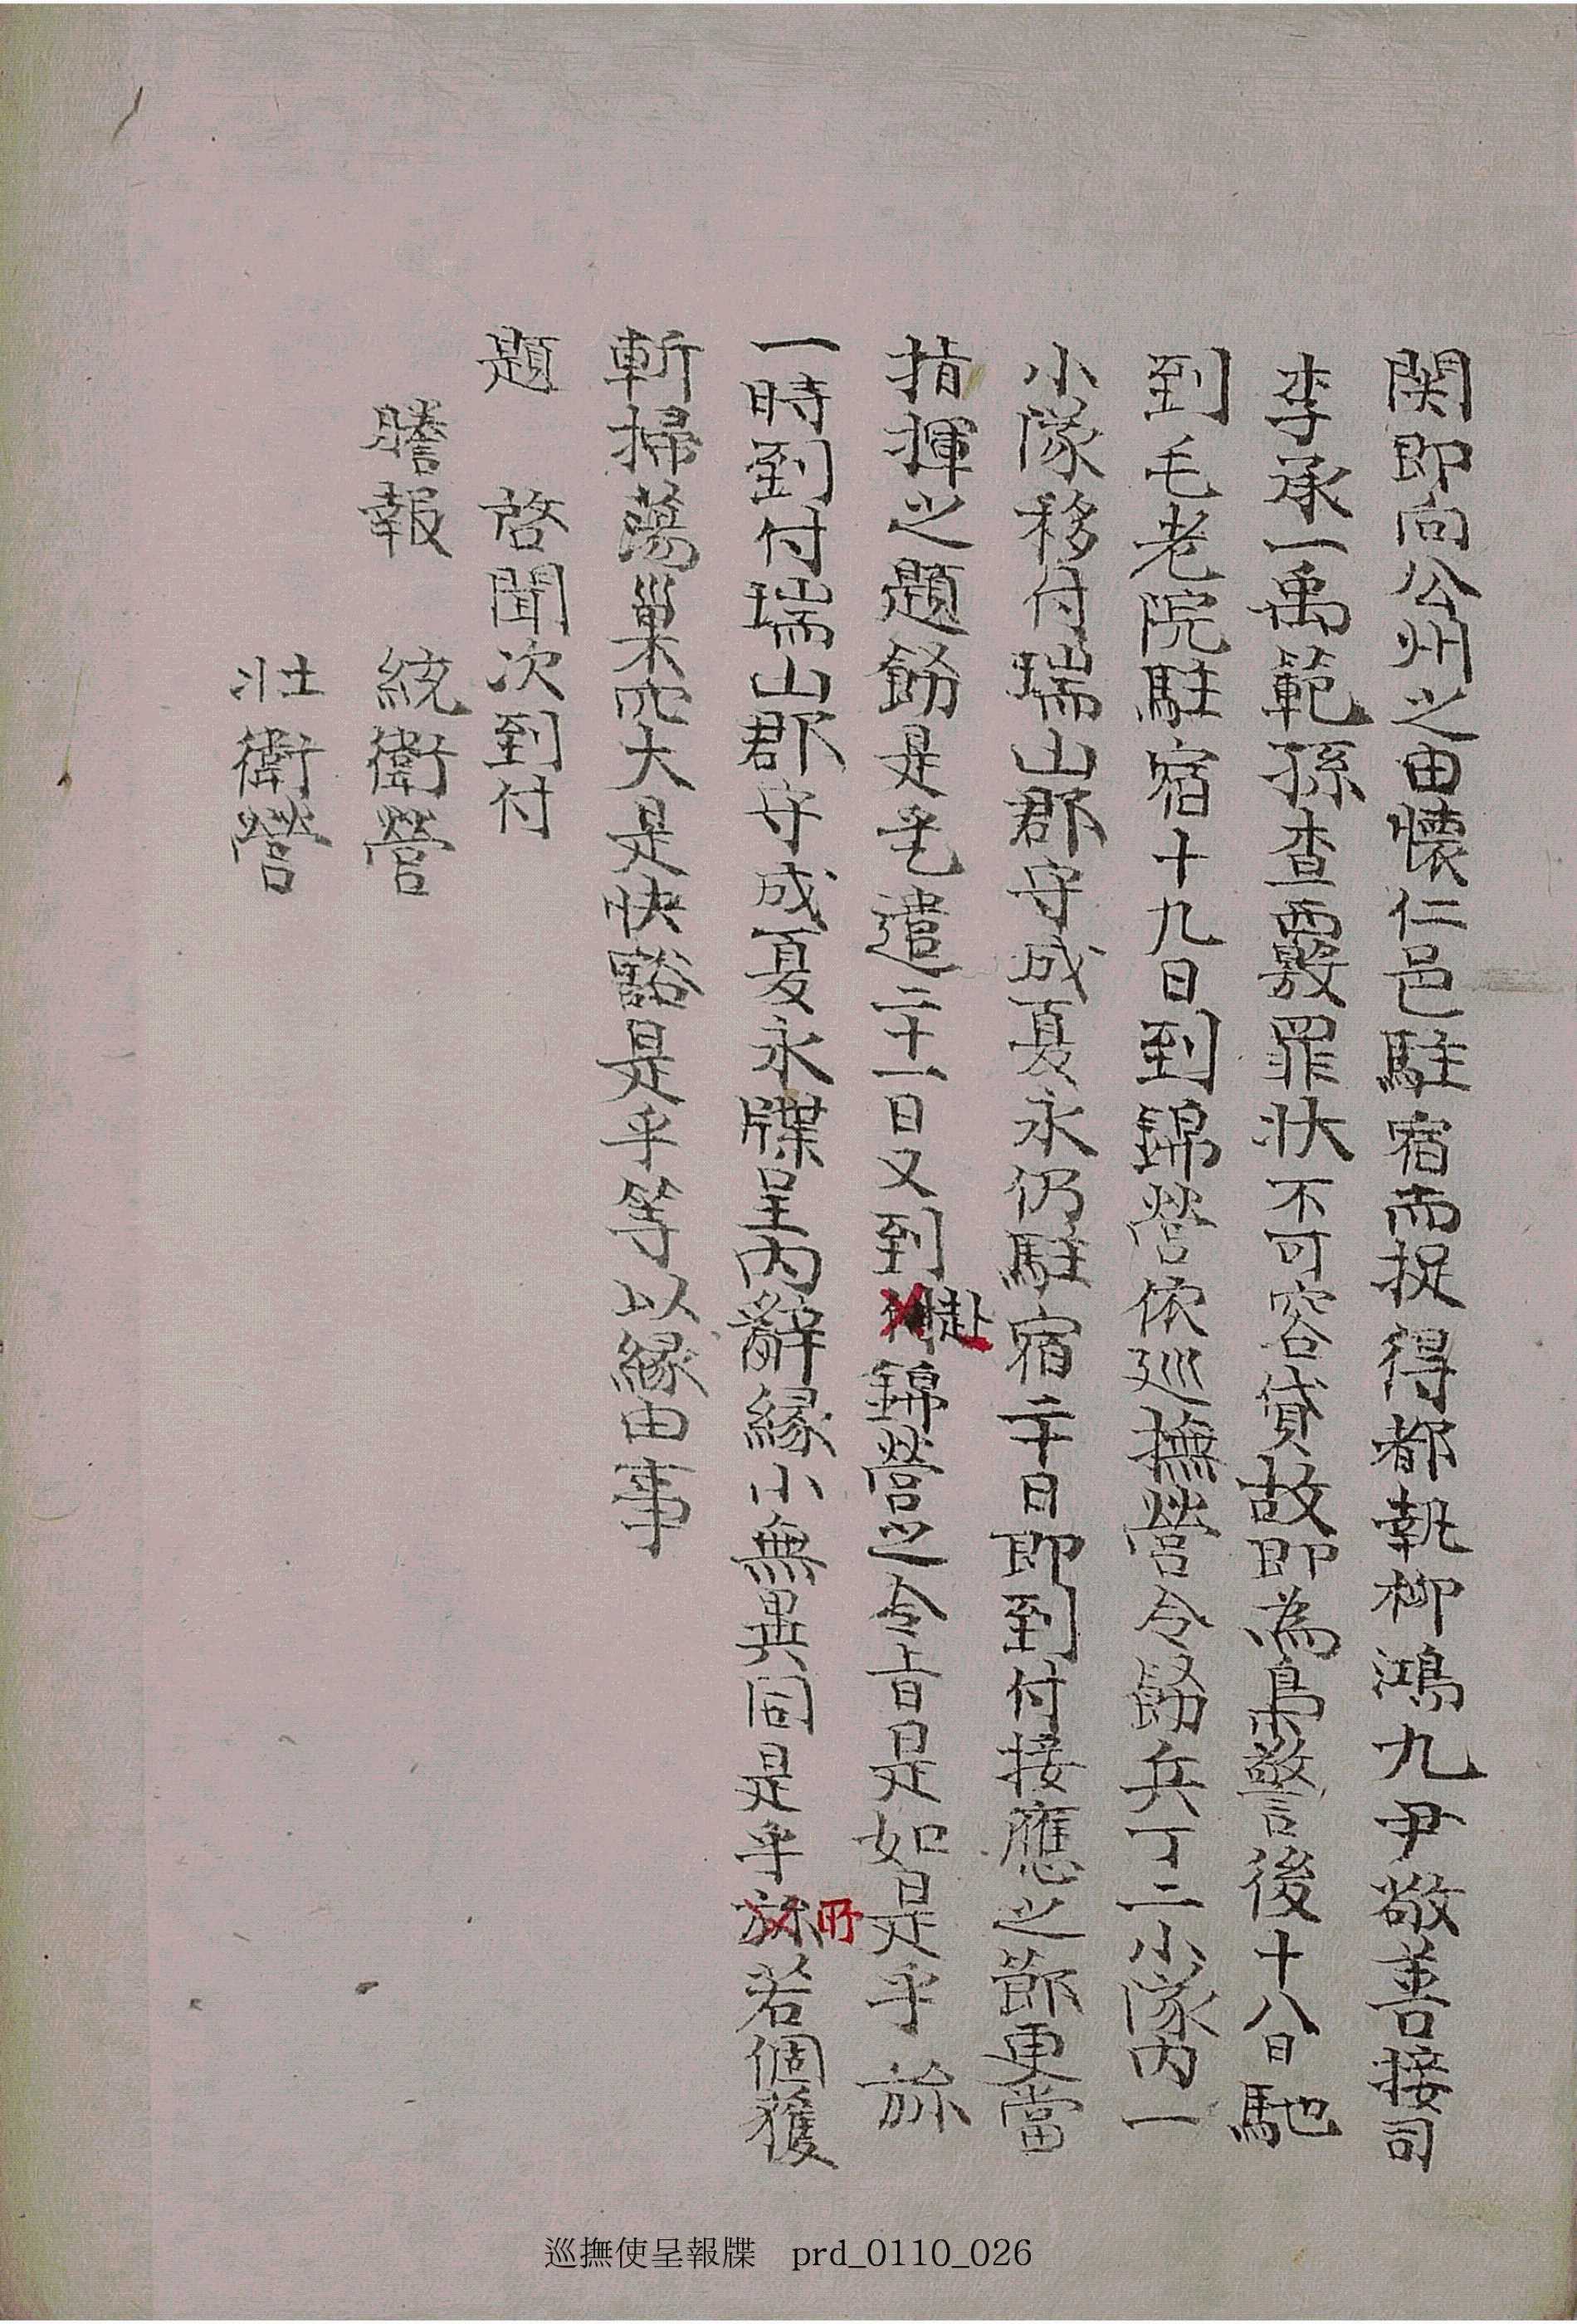 関即向公州之由懷仁邑駐宿而捉得都執柳鴻九尹敬善接司
李承一禹範孫查覈罪狀不可容貸故即為梟警後十八日馳
到毛老院駐宿十九日到錦營依巡撫營令飭兵丁二小隊內一
小隊移付瑞山郡守成夏永仍駐宿二十日即到付接應之節更當
指揮之題飭是乎遣二十一日又到赴錦營之令旨是如是乎旀
一時到付瑞山郡守成夏永牒呈內辭緣小無異同是乎所若個獲
斬掃蕩巢穴大是快豁是乎等以緣由事
題 啓聞次到付
謄報 統衛營
壯衛營
巡撫使呈報牒 prd_0110_026